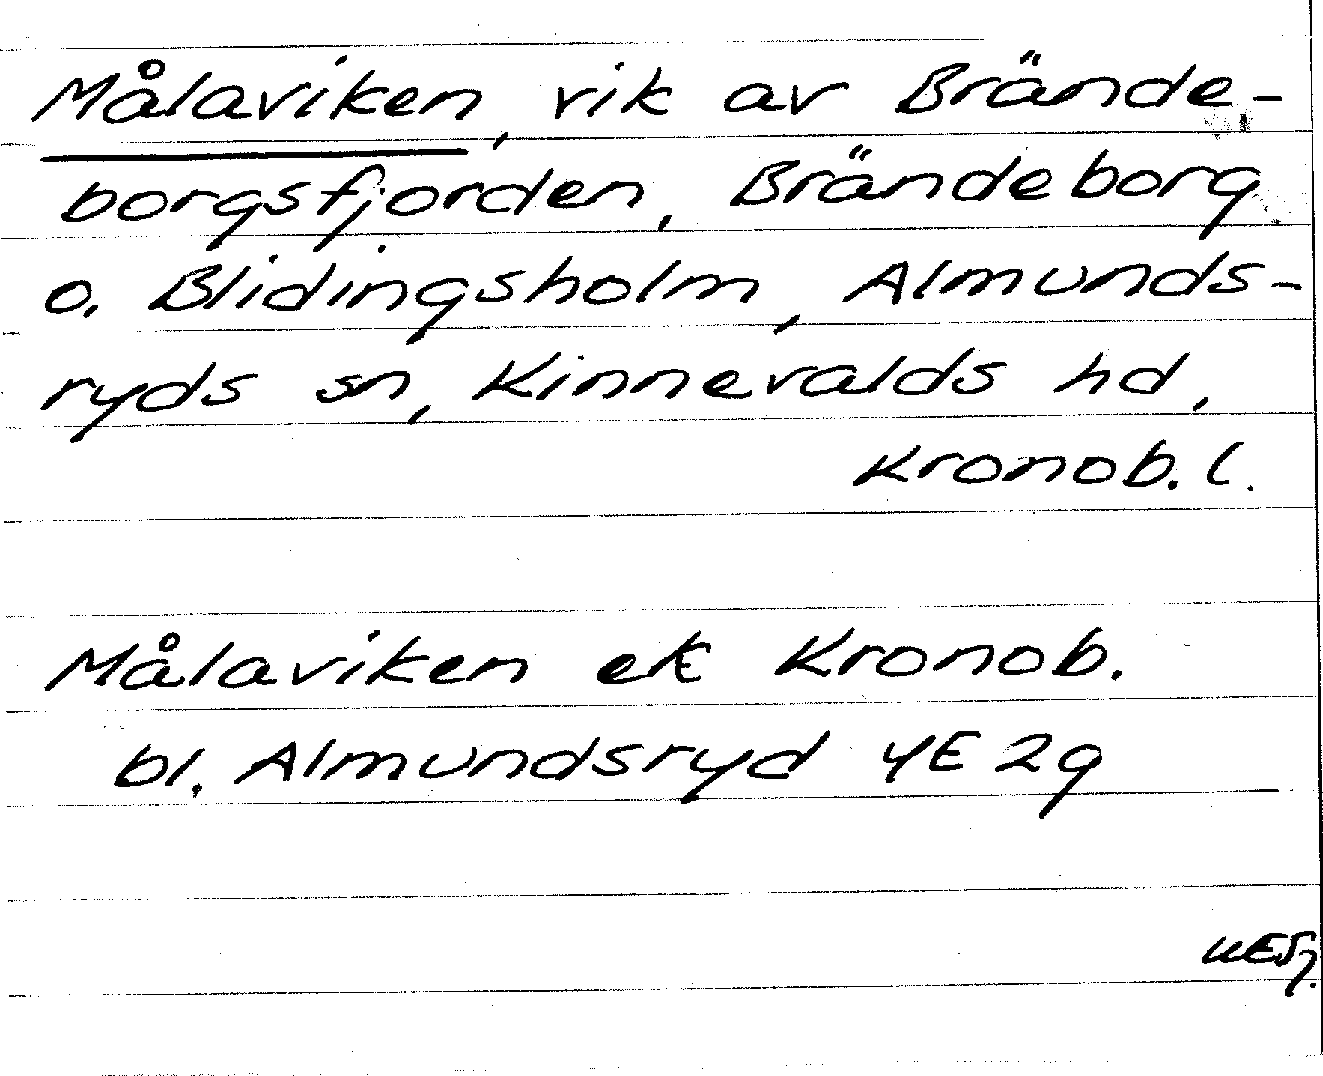 Målaviken, vik av Brände-
borgsfjorden, Brändeborg
o. Blidingsholm, Almunds-
ryds sn, Kinnevalds hd,
Kronob. l.
Målaviken ek Kronob.
bl. Almundsryd 4E 2g